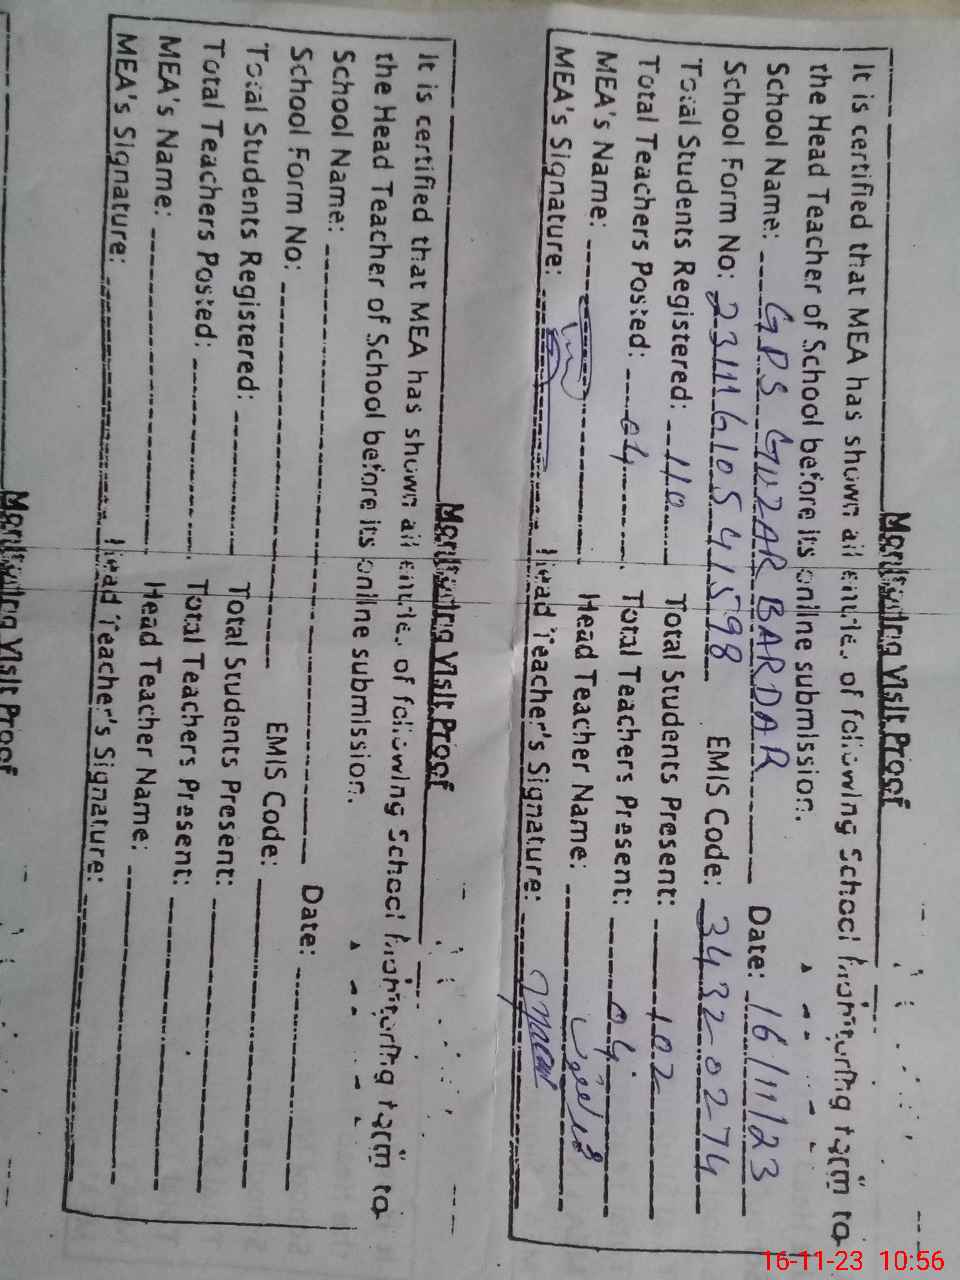 Monitoring Visit Proof
It is certified that MEA has shown all entries of following School Monitoring farm to
the Head Teacher of School before its online submission.
School Name: GPS GUZAR BARDAR Date: 16/11/23
School Form No: 23111610541598 EMIS Code: 34320274
Total Students Registered: 110 Total Students Present: 102
Total Teachers Posted: 04 Total Teachers Present: 04
MEA's Name: Head Teacher Name:
MEA's Signature: Head Teacher's Signature:
Monitoring Visit Proof
It is certified that MEA has shown all entries of following School Monitoring farm to
the Head Teacher of School before its online submission.
School Name: Date:
School Form No: EMIS Code:
Total Students Registered: Total Students Present:
Total Teachers Posted: Total Teachers Present:
MEA's Name: Head Teacher Name:
MEA's Signature: Head Teacher's Signature:
Monitoring Visit Proof
16-11-23 10:56